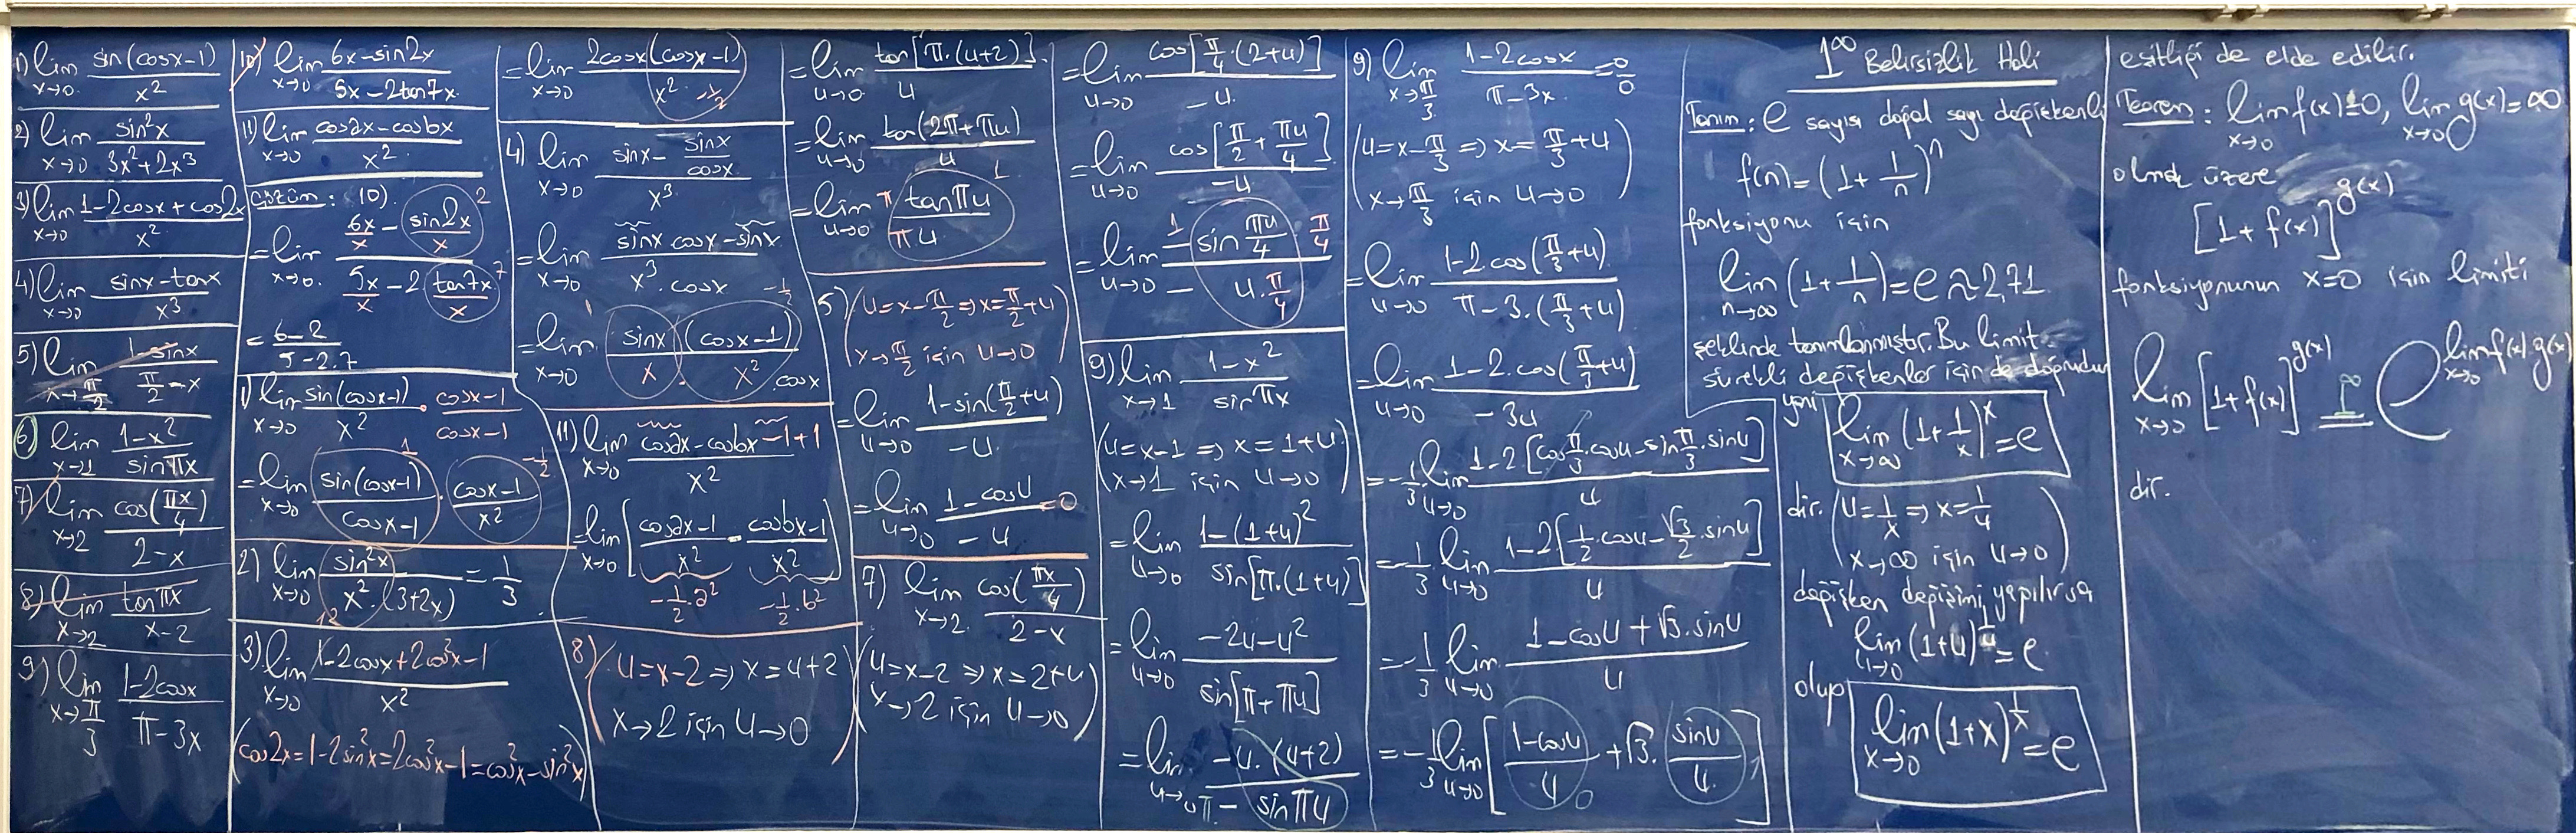 1) lim x→0 sin(cosx-1) / x²
2) lim x→0 sin²x / 3x²+2x³
3) lim x→0 1-2cosx+cos2x / x²
4) lim x→0 sinx-tanx / x³
5) lim x→π/2 1-sinx / π/2-x
6) lim x→1 1-x² / sinπx
7) lim x→2 cos(πx/4) / 2-x
8) lim x→2 tanπx / x-2
9) lim x→π/3 1-2cosx / π-3x
10) lim x→0 6x-sin2x / 5x-2tan7x
11) lim x→0 cosax-cosbx / x²
Çözüm: 10)
= lim x→0 6x/x - sin2x/x 2 / 5x/x - 2 tan7x/x 7
= 6-2 / 5-2.7
1) lim x→0 sin(cosx-1) / x² . cosx-1 / cosx-1
= lim x→0 sin(cosx-1) / cosx-1 1 . cosx-1 / x² -1/2
2) lim x→0 sin²x / x².(3+2x) = 1/3
3) lim x→0 1-2cosx+2cos²x-1 / x²
(cos2x=1-2sin²x=2cos²x-1=cos²x-sin²x)
= lim x→0 2cosx(cosx-1) / x² -1/2
4) lim x→0 sinx - sinx/cosx / x³
= lim x→0 sinx cosx-sinx / x³.cosx
= lim x→0 sinx (cosx-1) / x . x² . cosx -1/2
11) lim x→0 cosax-cosbx-1+1 / x²
= lim x→0 [cosax-1 / x² - cosbx-1 / x²]
-1/2.a² -1/2.b²
8) (u=x-2 ⇒ x=u+2
x→2 için u→0)
= lim u→0 tan[π.(u+2)] / u
= lim u→0 tan(2π+πu) / u
= lim u→0 π tanπu / πu 1
5) (u=x-π/2 ⇒ x=π/2+u
x→π/2 için u→0)
= lim u→0 1-sin(π/2+u) / -u
= lim u→0 1-cosu / -u = 0
7) lim x→2 cos(πx/4) / 2-x
(u=x-2 ⇒ x=2+u
x→2 için u→0)
= lim u→0 cos[π/4.(2+u)] / -u
= lim u→0 cos[π/2 + πu/4] / -u
= lim u→0 - sin πu/4 . π/4 / - u.π/4 1
9) lim x→1 1-x² / sinπx
(u=x-1 ⇒ x=1+u
x→1 için u→0)
= lim u→0 1-(1+u)² / sin[π.(1+u)]
= lim u→0 -2u-u² / sin[π+πu]
= lim u→0 -u.(u+2) / π - sinπu
9) lim x→π/3 1-2cosx / π-3x = 0/0
(u=x-π/3 ⇒ x=π/3+u
x→π/3 için u→0)
= lim u→0 1-2.cos(π/3+u) / π-3.(π/3+u)
= lim u→0 1-2.cos(π/3+u) / -3u
= -1/3 lim u→0 1-2.[cosπ/3.cosu-sinπ/3.sinu] / u
= -1/3 lim u→0 1-2[1/2.cosu-√3/2.sinu] / u
= -1/3 lim u→0 1-cosu+√3.sinu / u
= -1/3 lim u→0 [1-cosu / u 0 + √3. sinu / u 1]
1^∞ Belirsizlik Hali
Tanım: e sayısı doğal sayı değişkenli
f(n)=(1+1/n)^n
fonksiyonu için
lim n→∞ (1+1/n)=e≈2,71
şeklinde tanımlanmıştır. Bu limit
sürekli değişkenler için de doğrudur
yani
lim x→∞ (1+1/x)^x=e
dir. (u=1/x ⇒ x=1/u
x→∞ için u→0)
değişken değişimi yapılırsa
lim u→0 (1+u)^1/u=e
olup
lim x→0 (1+x)^1/x=e
eşitliği de elde edilir.
Teorem: lim x→0 f(x)=0, lim x→0 g(x)=∞
olmak üzere
[1+f(x)]^g(x)
fonksiyonunun x=0 için limiti
lim x→0 [1+f(x)]^g(x) 1^∞ = e^lim x→0 f(x).g(x)
dir.